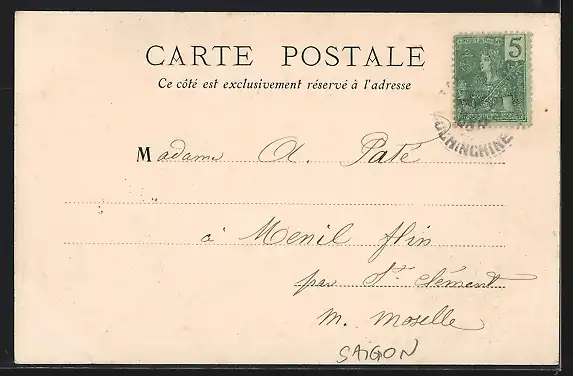 CARTE POSTALE
Ce côté est exclusivement réservé à l'adresse
5
COCHINCHINE
Madame A. Paté
à Menil flin
par St. Clément
M. Moselle
SAIGON